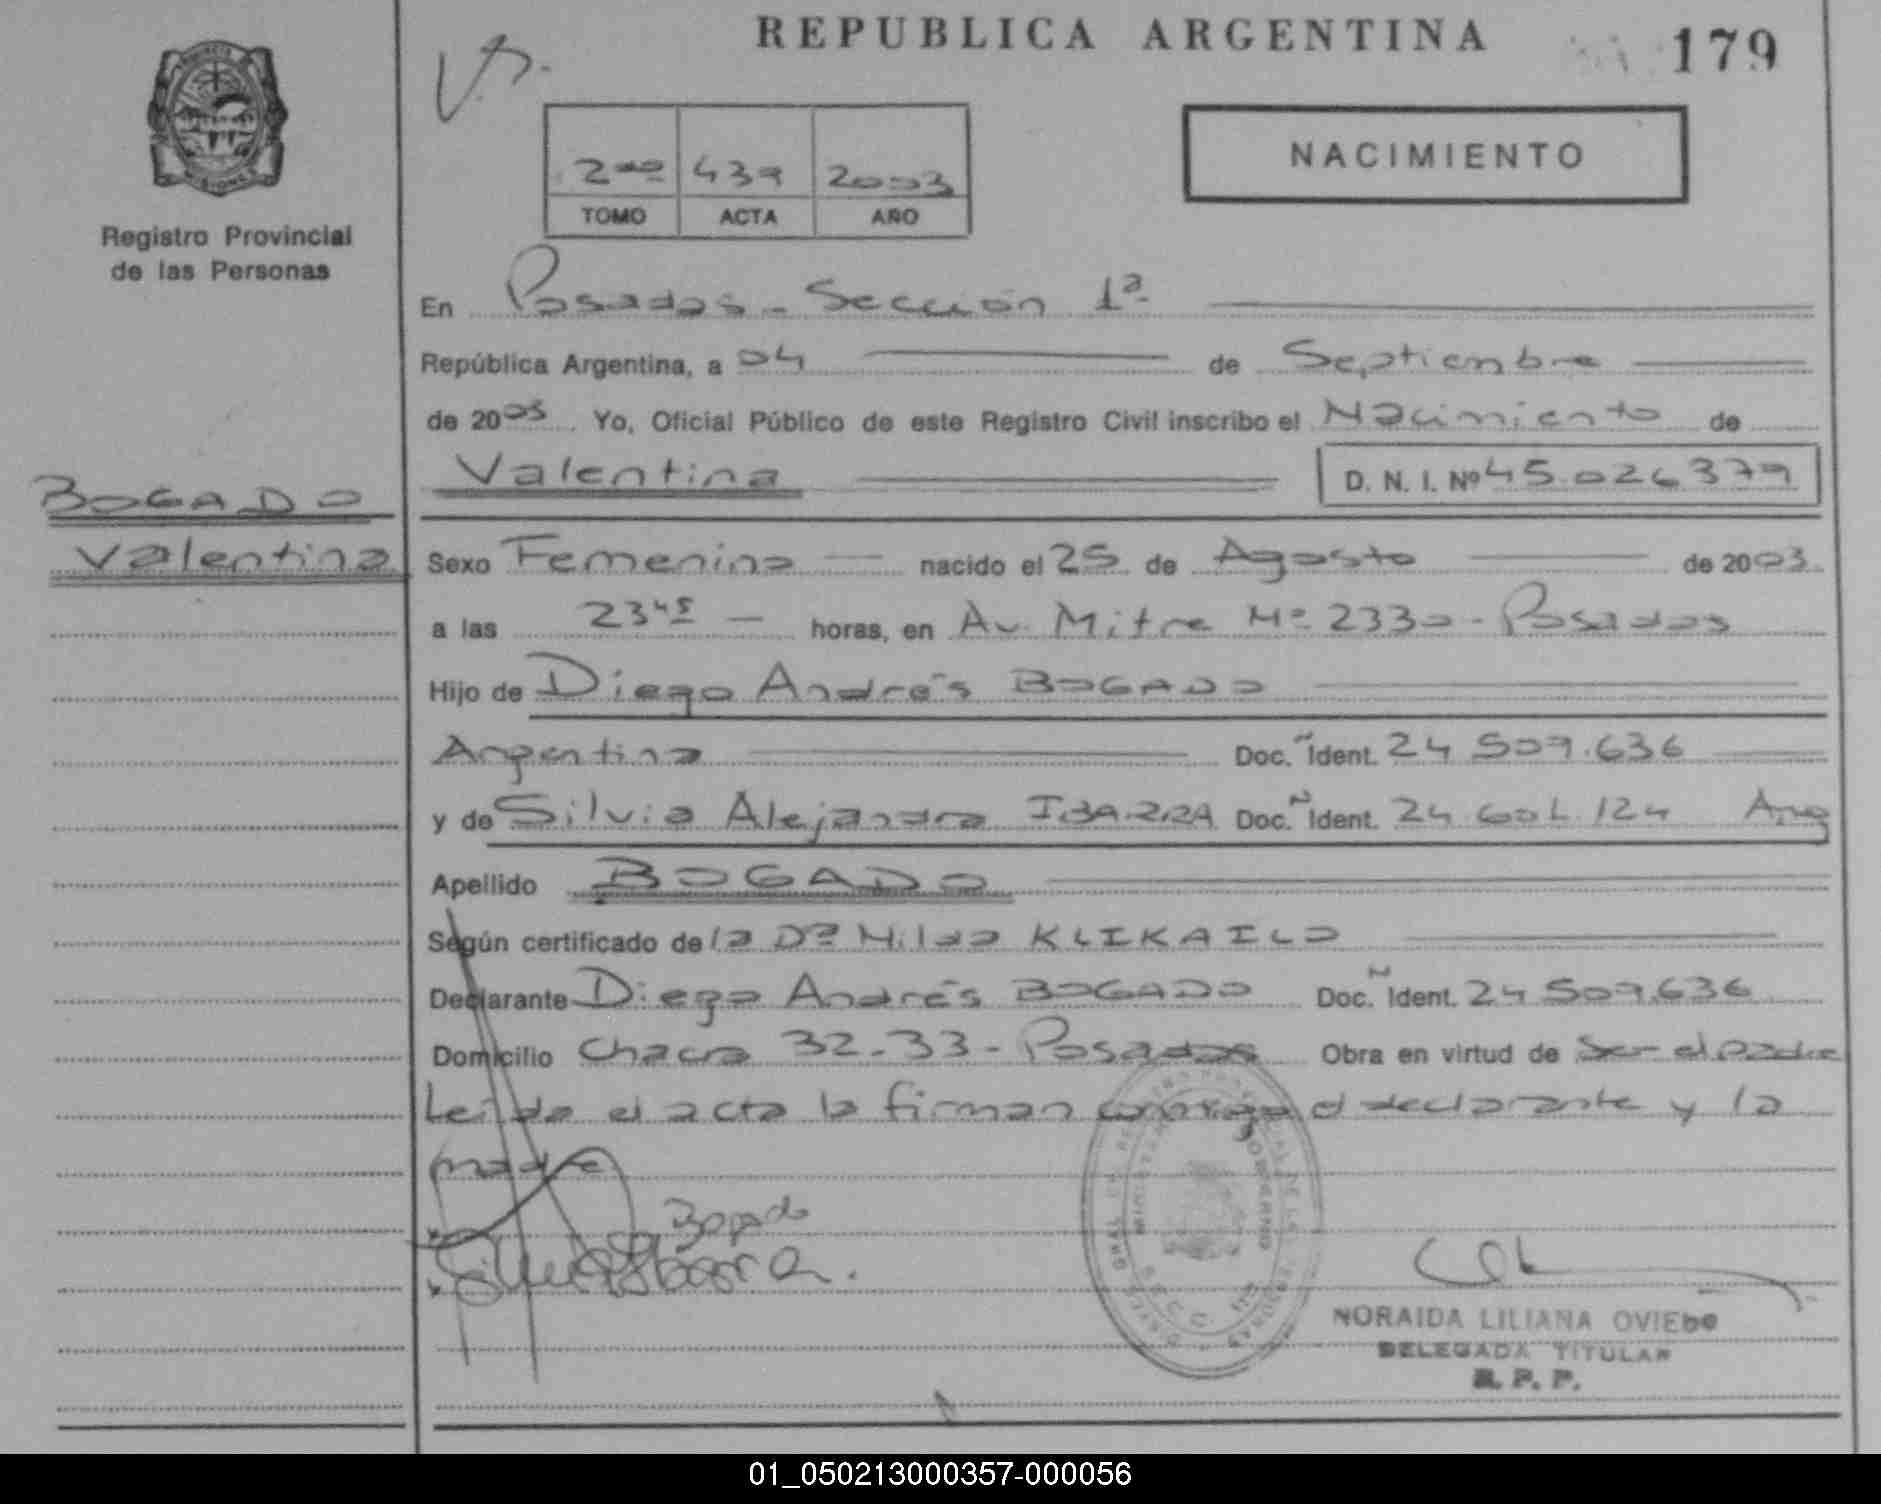 REPUBLICA ARGENTINA
179
PROVINCIA
MISIONES
Registro Provincial
de las Personas
2do 439 2003
TOMO ACTA AÑO
NACIMIENTO
En Posadas - Sección 1ª
República Argentina, a 04 de Septiembre
de 2003. Yo, Oficial Público de este Registro Civil inscribo el Nacimiento de
Valentina D. N. I. Nº 45.026.379
BOGADO
Valentina
Sexo Femenino nacido el 25 de Agosto de 2003.
a las 23 45 horas, en Av. Mitre Nº 2330 - Posadas
Hijo de Diego Andrés BOGADO
Argentino Doc. Ident. 24 509.636
y de Silvia Alejandra IBARRA Doc. Ident. 24 601.124 Arg
Apellido BOGADO
Según certificado de la Dra Nilda KLIKAILO
Declarante Diego Andrés BOGADO Doc. Ident. 24 509.636
Domicilio Chacra 32-33 - Posadas Obra en virtud de Ser el padre
Leída el acta la firman conmigo el declarante y la
madre
Bogado
Silvia A Ibarra.
NORAIDA LILIANA OVIEDO
DELEGADA TITULAR
R. P. P.
01_050213000357-000056